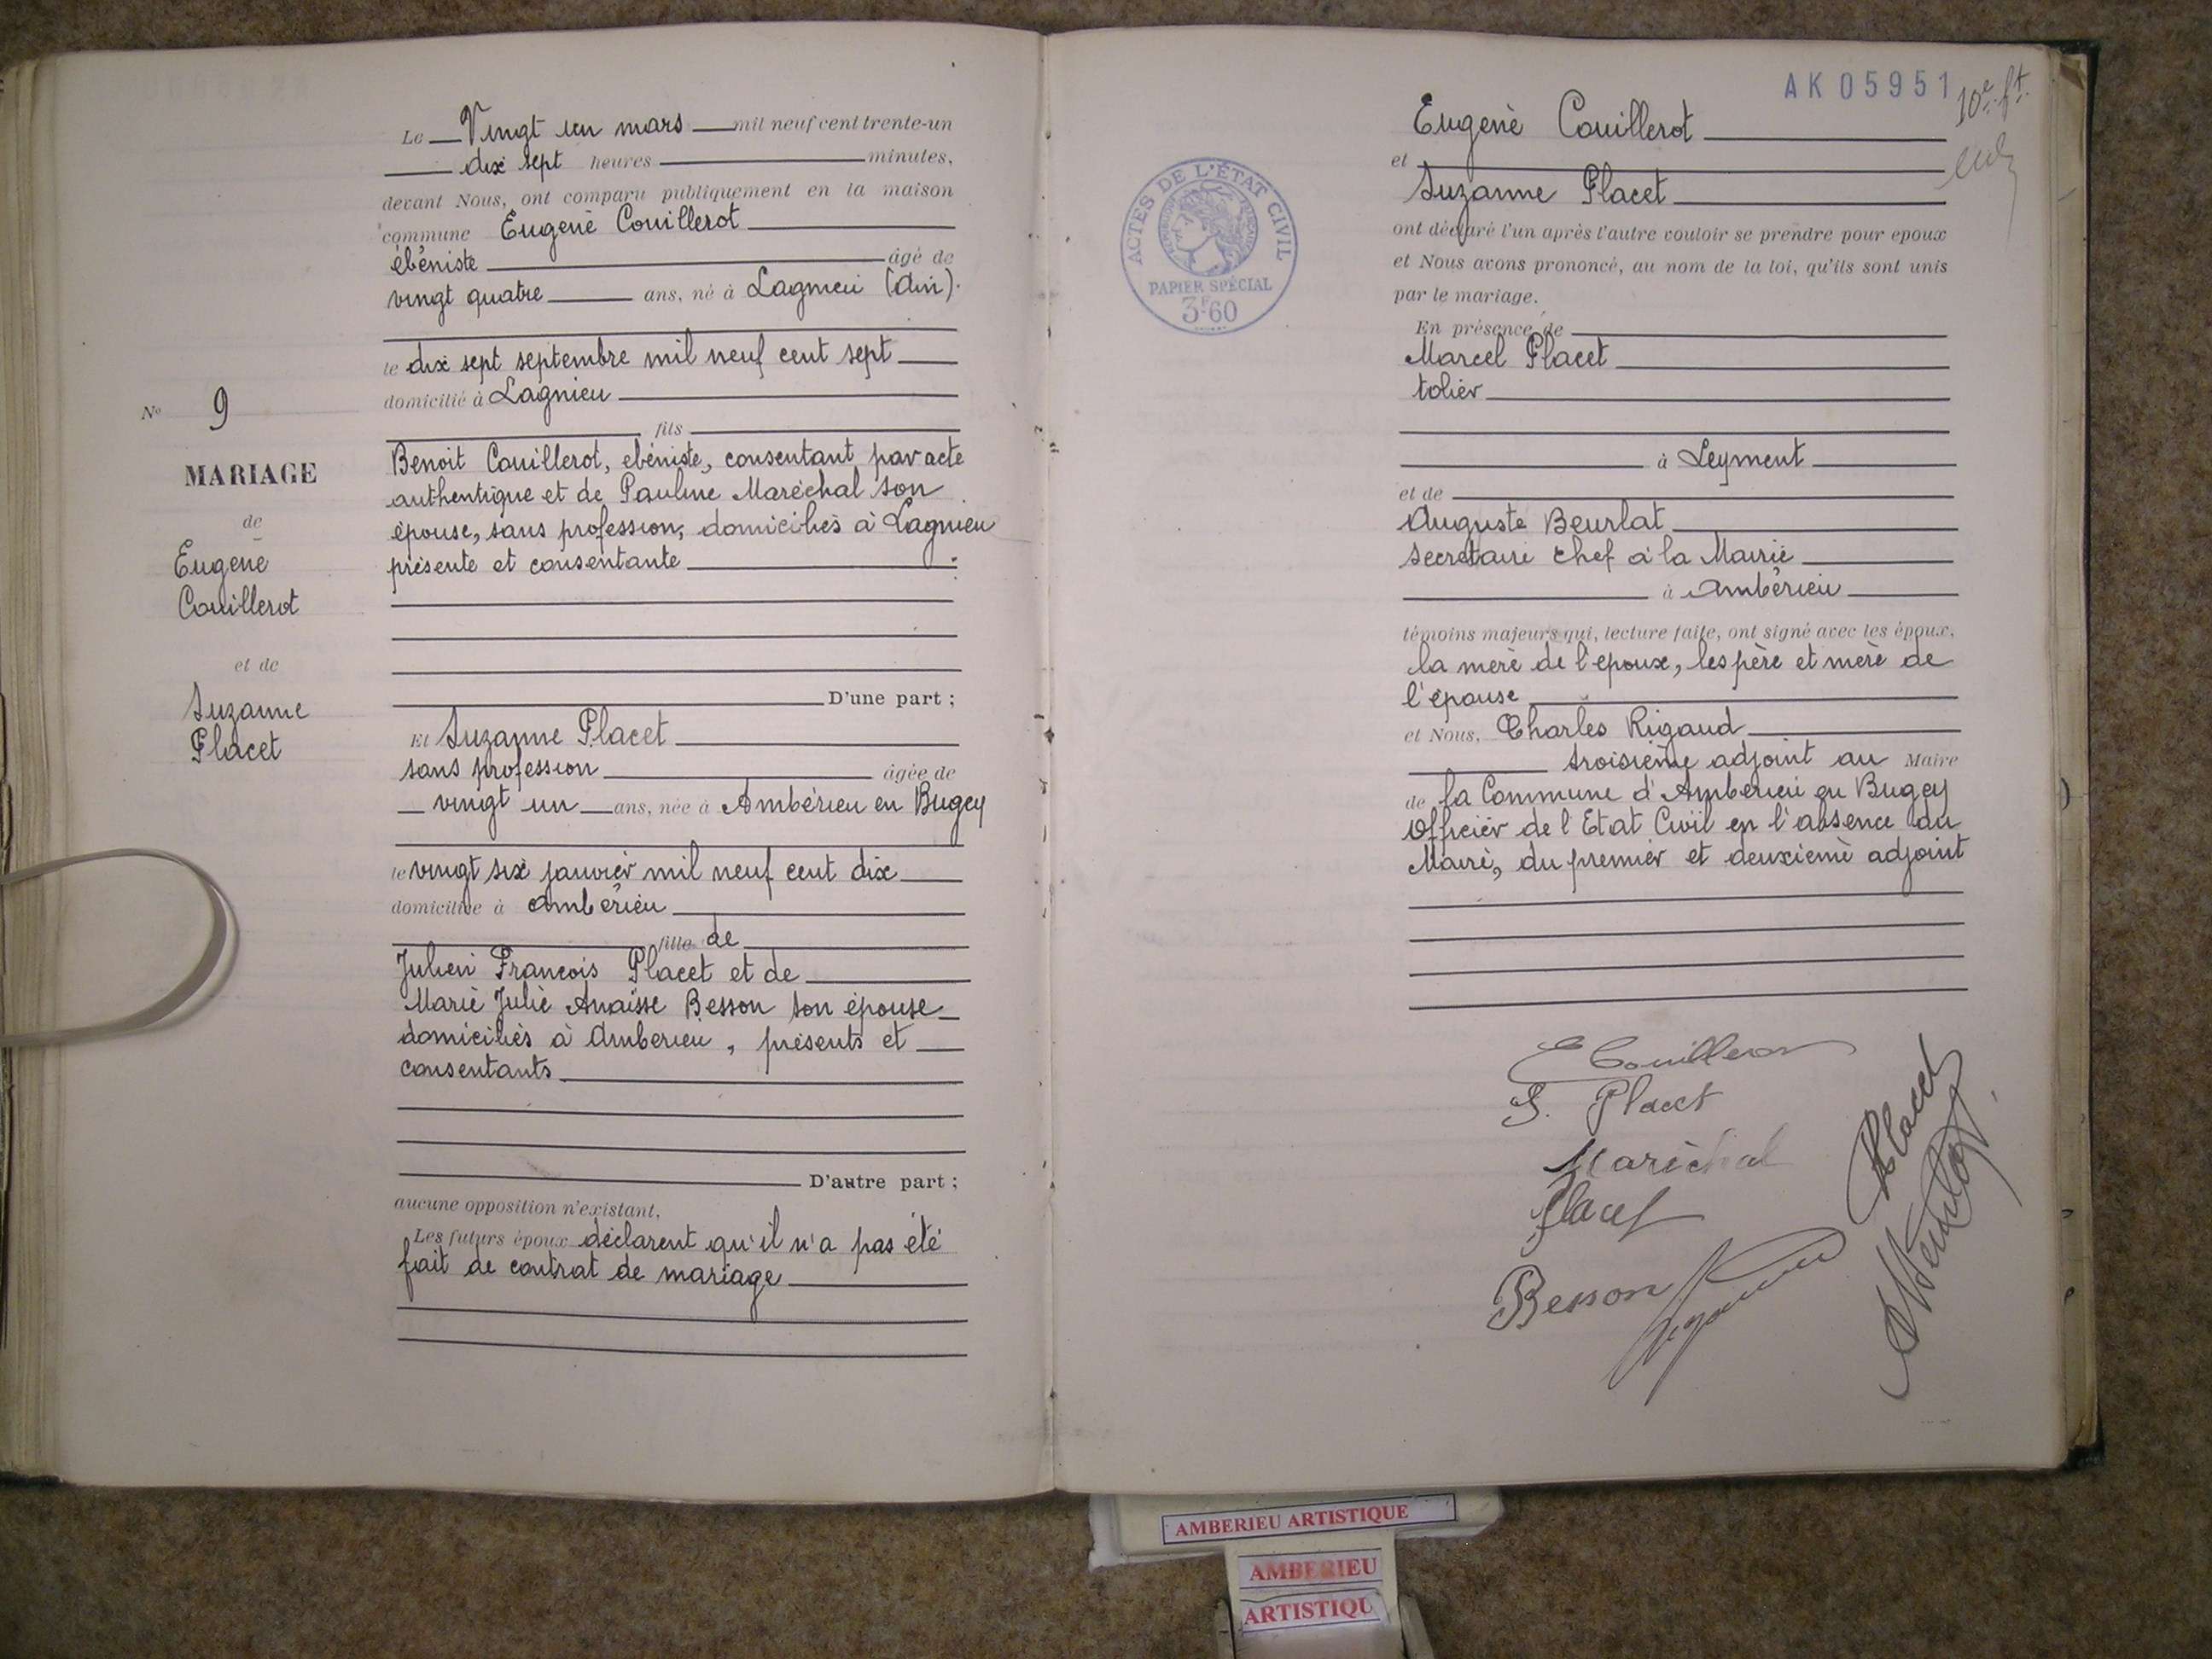 Le Vingt un mars mil neuf cent trente-un
dix sept heures minutes,
devant Nous, ont comparu publiquement en la maison
commune Eugène Couillerot
ébéniste âgé de
vingt quatre ans, né à Lagnieu (Ain).
le dix sept septembre mil neuf cent sept
domicilié à Lagnieu
fils
Benoit Couillerot, ebéniste, consentant par acte
authentique et de Pauline Maréchal son
épouse, sans profession, domiciliés à Lagnieu
présente et consentante
D'une part ;
Et Suzanne Placet
sans profession âgée de
vingt un ans, née à Ambérieu en Bugey
le vingt six janvier mil neuf cent dix
domiciliée à Ambérieu
fille de
Julien François Placet et de
Marie Julie Anaïsse Besson son épouse
domiciliés à Amberieu, présents et
consentants
D'autre part ;
aucune opposition n'existant,
Les futurs époux déclarent qu'il n'a pas été
fait de contrat de mariage
No 9
MARIAGE
de
Eugène
Couillerot
et de
Suzanne
Placet
AK 05951
10e ft.
Eugène Couillerot
et
Suzanne Placet
ont déclaré l'un après l'autre vouloir se prendre pour epoux
et Nous avons prononcé, au nom de la loi, qu'ils sont unis
par le mariage.
En présence de
Marcel Placet
tolier
à Leyment
et de
Auguste Beurlat
secretaire chef à la Mairie
à Ambérieu
témoins majeurs qui, lecture faite, ont signé avec les époux,
la mère de l'epoux, les père et mère de
l'épouse
et Nous, Charles Rigaud
troisième adjoint au Maire
de la Commune d'Amberieu en Bugey
Officier de l'Etat Civil en l'absence du
Maire, du premier et deuxieme adjoint
ACTES DE L'ÉTAT CIVIL
PAPIER SPÉCIAL
3F60
E Couillerot
S. Placet
Maréchal
Placet
Besson
Placet
AMBERIEU ARTISTIQUE
AMBERIEU
ARTISTIQU